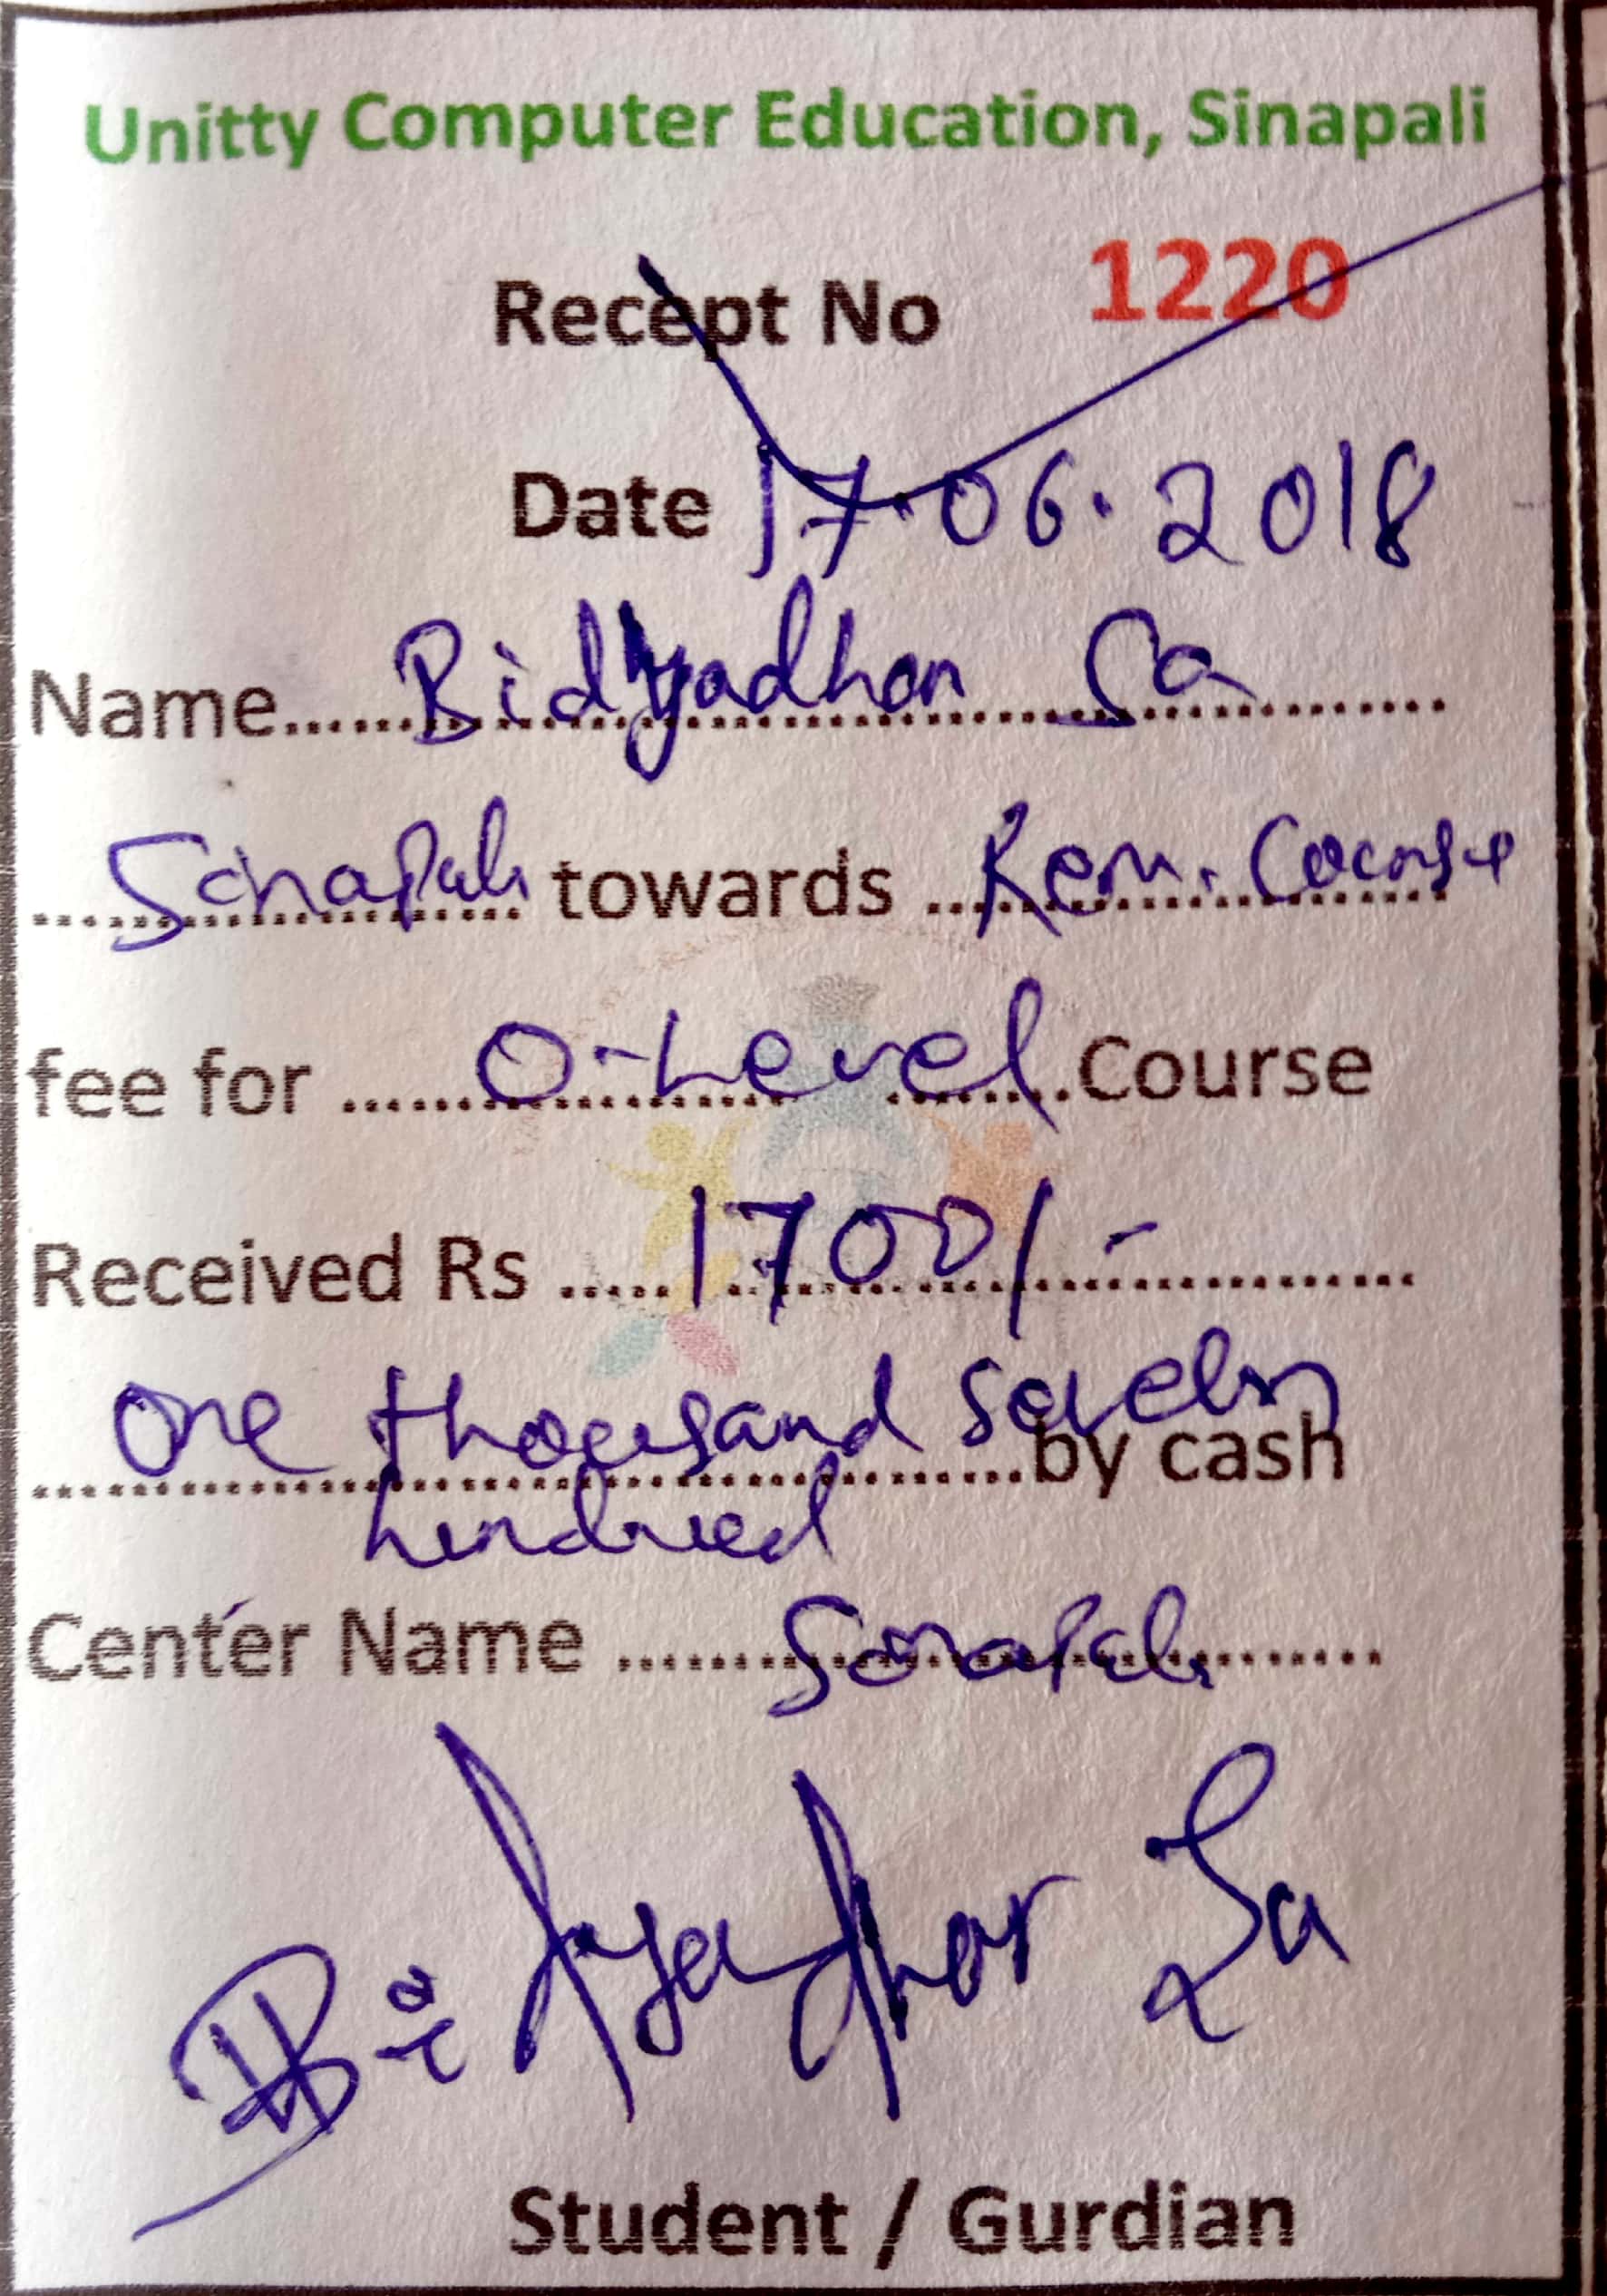 Unitty Computer Education, Sinapali
Recept No 1220
Date 17.06.2018
Name...... Bidyadhar Sa
Sinapali towards ... Rem. Course
fee for ...... O-Level ...Course
Received Rs ..... 1700/-
One thousand seven by cash
hundred
Center Name ....... Sinapali
Bidyadhar Sa
Student / Gurdian